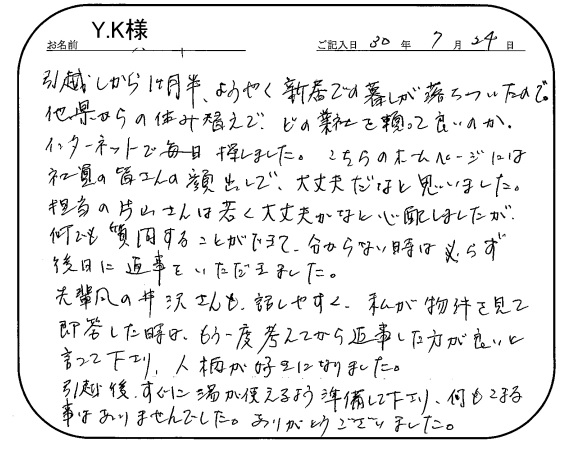 Y.K様
お名前
ご記入日 30 年 7 月 24 日
引越しから1ヶ月半、ようやく新居での暮しが落ちついたので。
他県からの住み替えで、どの業社を頼って良いのか、
インターネットで毎日探しました。こちらのホームページには
社員の皆さんの顔出しで、大丈夫だなと思いました。
担当の片山さんは若く大丈夫かなと心配しましたが、
何でも質問することができて、分からない時は必らず
後日に返事をいただきました。
先輩風の井沢さんも、話しやすく、私が物件を見て
即答した時は、もう一度考えてから返事した方が良いと
言って下さり、人柄が好きになりました。
引越後、すぐに湯が使えるよう準備して下さり、何もこまる
事はありませんでした。ありがとうございました。